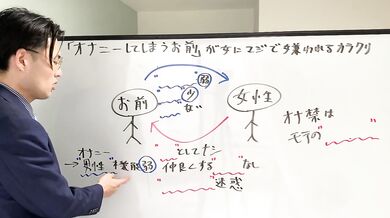 「オナニーしてしまうお前」が女にマジで嫌われるカラクリ
"弱"
"少"
"な"
お前
女性
オナ禁は"
モテの"
オナニー
→"男性"機能弱
"としてナシ
仲良くする"なし
"迷惑